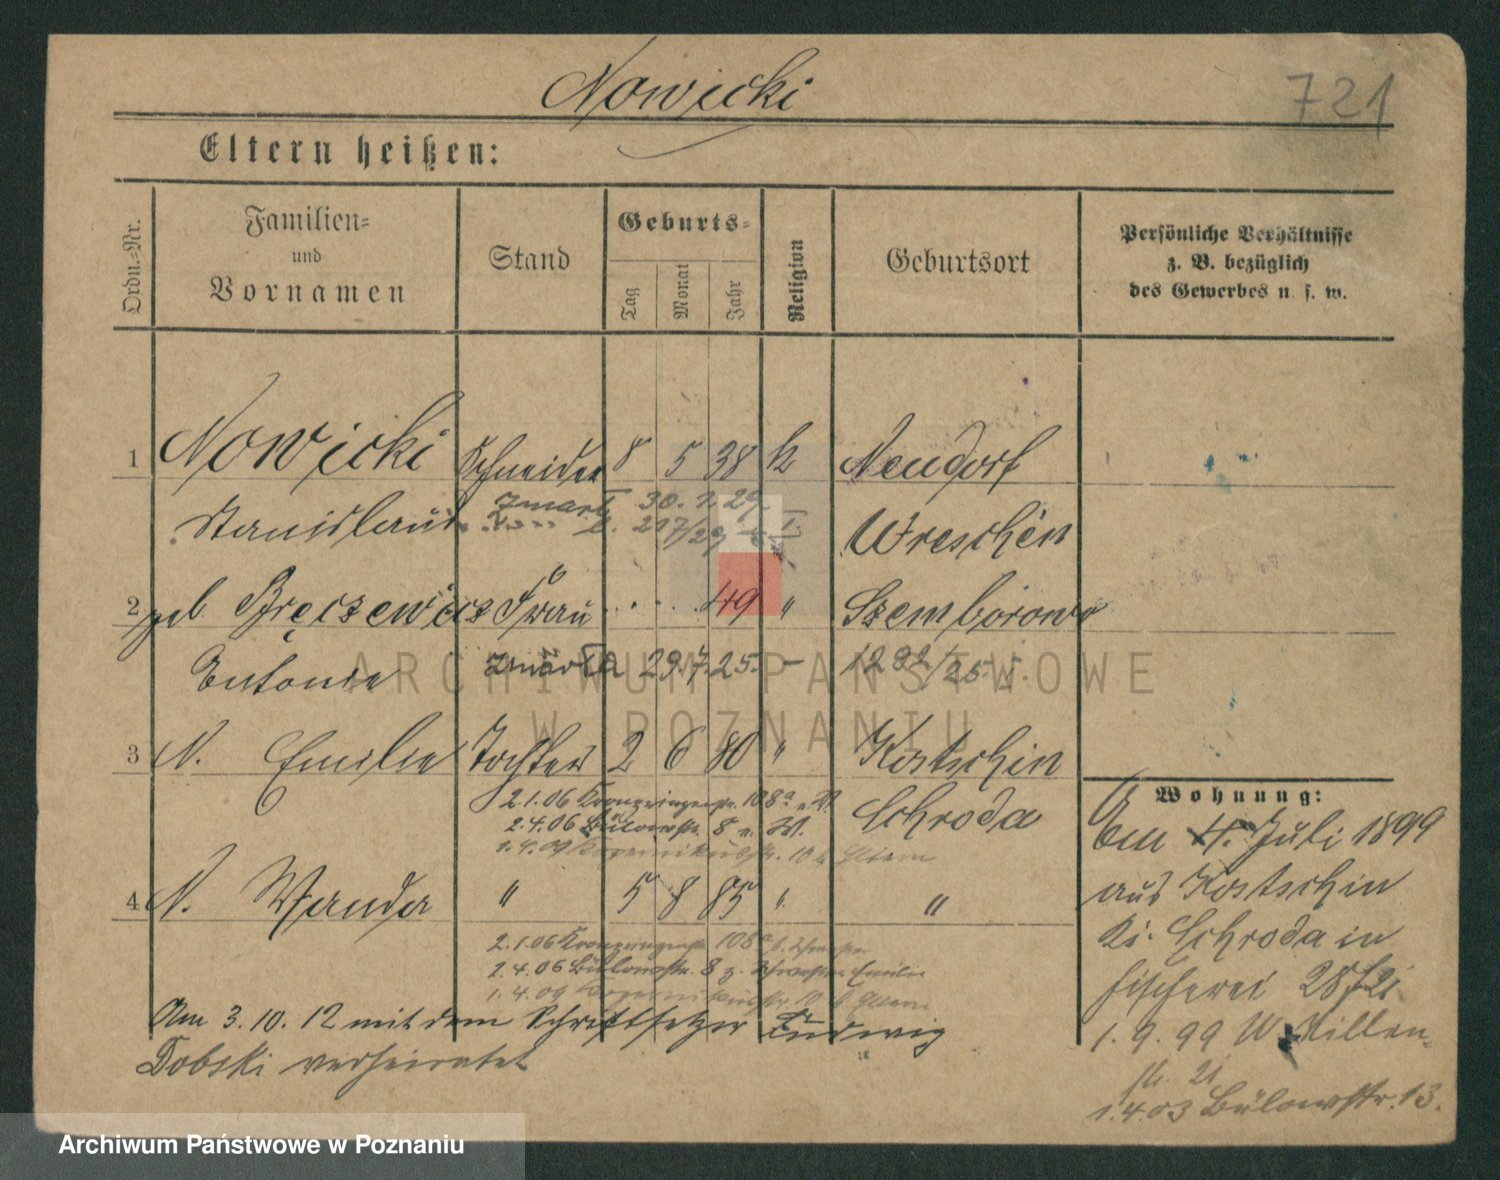 Nowicki
721
Eltern heißen:
Ordn.-Nr.
Familien-
und
Vornamen
Stand
Geburts-
Tag
Monat
Jahr
Religion
Geburtsort
Persönliche Verhältnisse
z. B. bezüglich
des Gewerbes u. s. w.
1 Nowicki Schneider 8 5 38 k Neudorf
Stanislaus zmarł 30. 1. 29 Wreschen
217/29
2 geb. Frau 49 " Szemborowo
Antonie zmarła 29.7.25. –
3 N. Emilie Tochter 2 6 80 " Kostschin
2.1.06 108a Schroda
2.4.06 Bülowstr. 8
1.4.09 10 Eltern
4 N. Wanda " 5 8 85 " "
2.1.06 108a
2.4.06 Bülowstr. 8 Emilie
1.4.09 10 Eltern
Am 3.10.12 mit dem Schriftsetzer Ludwig
Dobski verheiratet
Wohnung:
Juli 1899
aus Kostschin
Schroda in
Fischerei
1.9.99
21
1.4.03 Bülowstr. 13.
ARCHIWUM PAŃSTWOWE
W POZNANIU
Archiwum Państwowe w Poznaniu